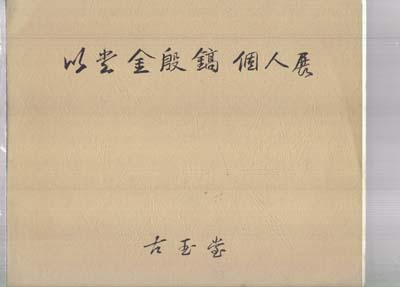 以堂金殷鎬 個人展
古玉堂